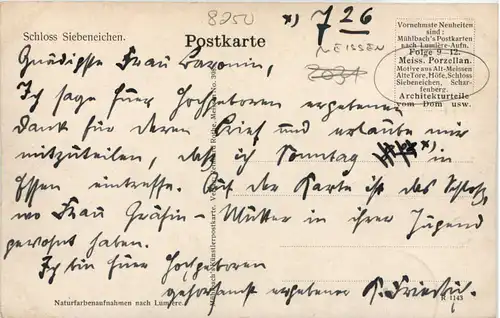 8250
*) 726
MEISSEN
2031
Schloss Siebeneichen.
Postkarte
Vornehmste Neuheiten
sind:
Mühlbach's Postkarten
nach Lumière-Aufn.
Folge 9–12.
Meiss. Porzellan.
Motive aus Alt-Meissen
Alte Tore, Höfe, Schloss
Siebeneichen, Schar-
fenberg.
Architekturteile
vom Dom usw.
Gnädigste Frau Baronin,
Ich sage Euer Hochgeboren ergebenen
Dank für deren Brief und erlaube mir
mitzuteilen, daß ich Sonntag *) in
Essen eintreffe. Auf der Karte ist das Schloß,
wo Frau Gräfin-Mutter in ihrer Jugend
gewohnt haben.
Ich bin Euer Hochgeboren
gehorsamst ergebener K. Friedrich.
Naturfarbenaufnahmen nach Lumière.
R 1143